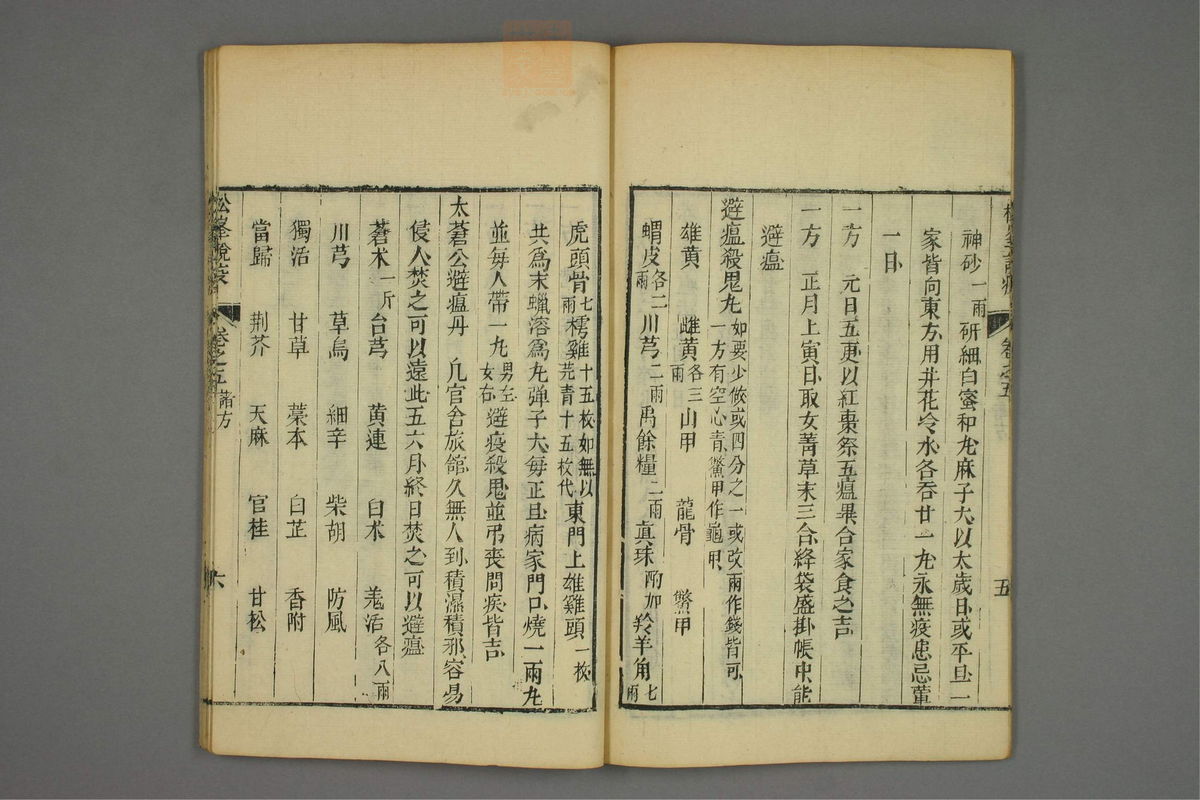 神砂一兩研細白蜜和丸麻子大以太歲日或平旦一
家皆向東方用井花冷水各吞廿一丸永無疫患忌葷
一日
一方 元日五更以紅棗祭五瘟畢合家食之吉
一方 正月上寅日取女菁草末三合絳袋盛掛帳中能
避瘟
避瘟殺鬼丸如要少做或四分之一或改兩作錢皆可
一方有空心青鱉甲作龜甲
雄黃 雌黃各三兩 山甲 龍骨 鱉甲
蝟皮各二兩 川芎二兩 禹餘糧二兩 真珠酌加 羚羊角七兩
五
虎頭骨七兩 樗雞十五枚如無以芫青十五枚代 東門上雄雞頭一枚
共為末蠟溶為丸彈子大每正旦病家門口燒一兩丸
並每人帶一丸男左女右避疫殺鬼並弔喪問疾皆吉
太蒼公避瘟丹 凡官舍旅館久無人到積濕積邪容易
侵人焚之可以遠此五六月終日焚之可以避瘟
蒼木一斤 台芎 黃連 白术 羗活各八兩
川芎 草烏 細辛 柴胡 防風
獨活 甘草 藁本 白芷 香附
當歸 荆芥 天麻 官桂 甘松
松峯說疫 卷之五 諸方 六